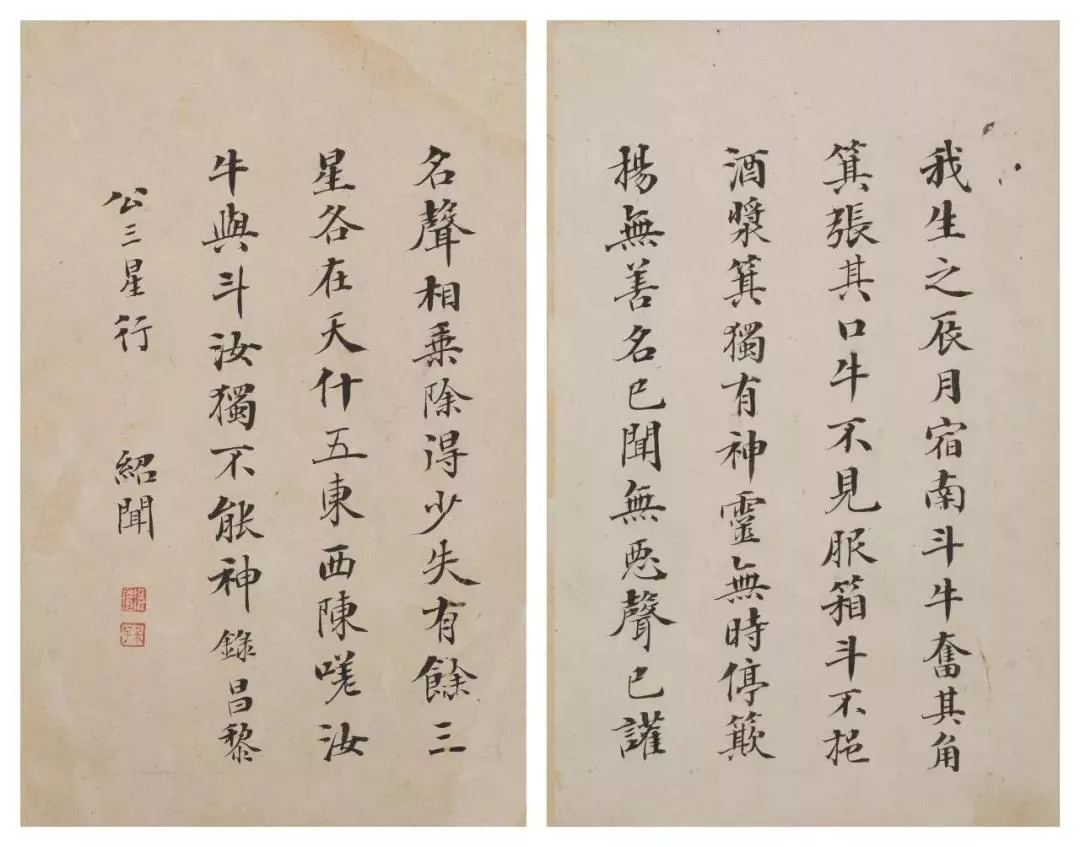 我生之辰月宿南斗牛奮其角
箕張其口牛不見服箱斗不挹
酒漿箕獨有神靈無時停簸
揚無善名已聞無惡聲已讙
名聲相乗除得少失有餘三
星各在天什五東西陳嗟汝
牛與斗汝獨不能神 錄昌黎
公三星行 紹聞